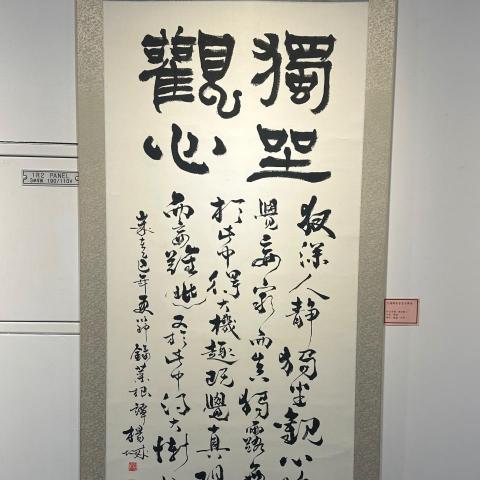 獨坐
觀心
夜深人靜獨坐觀心
覺妄窮而真獨露
於此中得大機趣既覺真現
而妄難逃又於此中得大慚
歲在乙巳年夏節錄菜根譚 楊
1R2 PANEL
190/110V